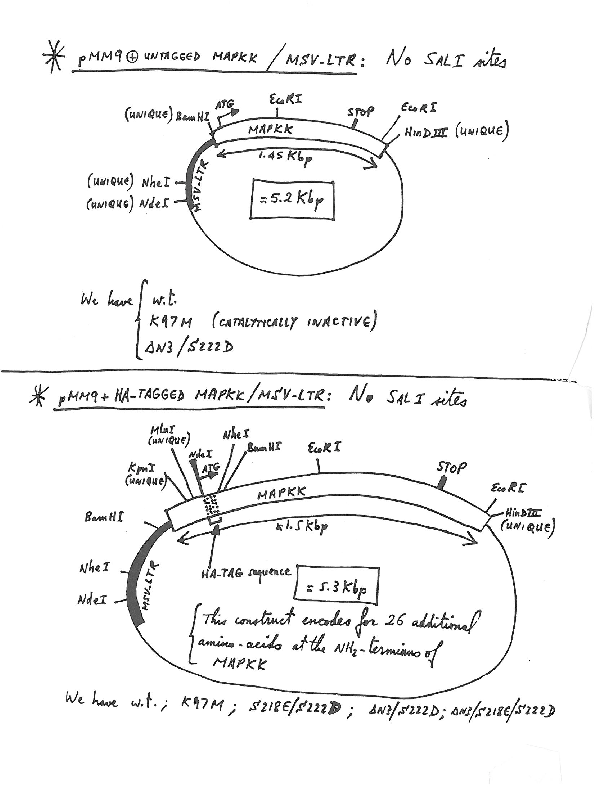 * pMM9 ⊕ UNTAGGED MAPKK / MSV-LTR: No SAL I sites
ATG
EcoRI
(UNIQUE) BamHI
STOP
EcoRI
MAPKK
HinDIII (UNIQUE)
1.45 Kbp
(UNIQUE) NheI
(UNIQUE) NdeI
MSV-LTR
= 5.2 Kbp
We have { w.t.
K97M (CATALYTICALLY INACTIVE)
ΔN3/S222D
* pMM9 + HA-TAGGED MAPKK/MSV-LTR: No SAL I sites
MluI
(UNIQUE)
NdeI
ATG
NheI
BamHI
EcoRI
KpnI
(UNIQUE)
STOP
EcoRI
MAPKK
BamHI
HinDIII
(UNIQUE)
≈1.5 Kbp
NheI
HA-TAG sequence
NdeI
MSV-LTR
= 5.3 Kbp
{ This construct encodes for 26 additional
amino-acids at the NH2-terminus of
MAPKK
We have w.t.; K97M; S218E/S222D; ΔN3/S222D; ΔN3/S218E/S222D